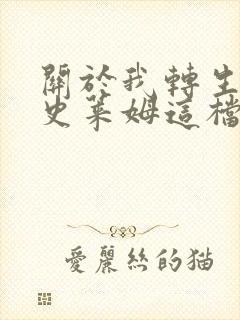 關於我轉生
史萊姆這檔
愛麗絲的猫